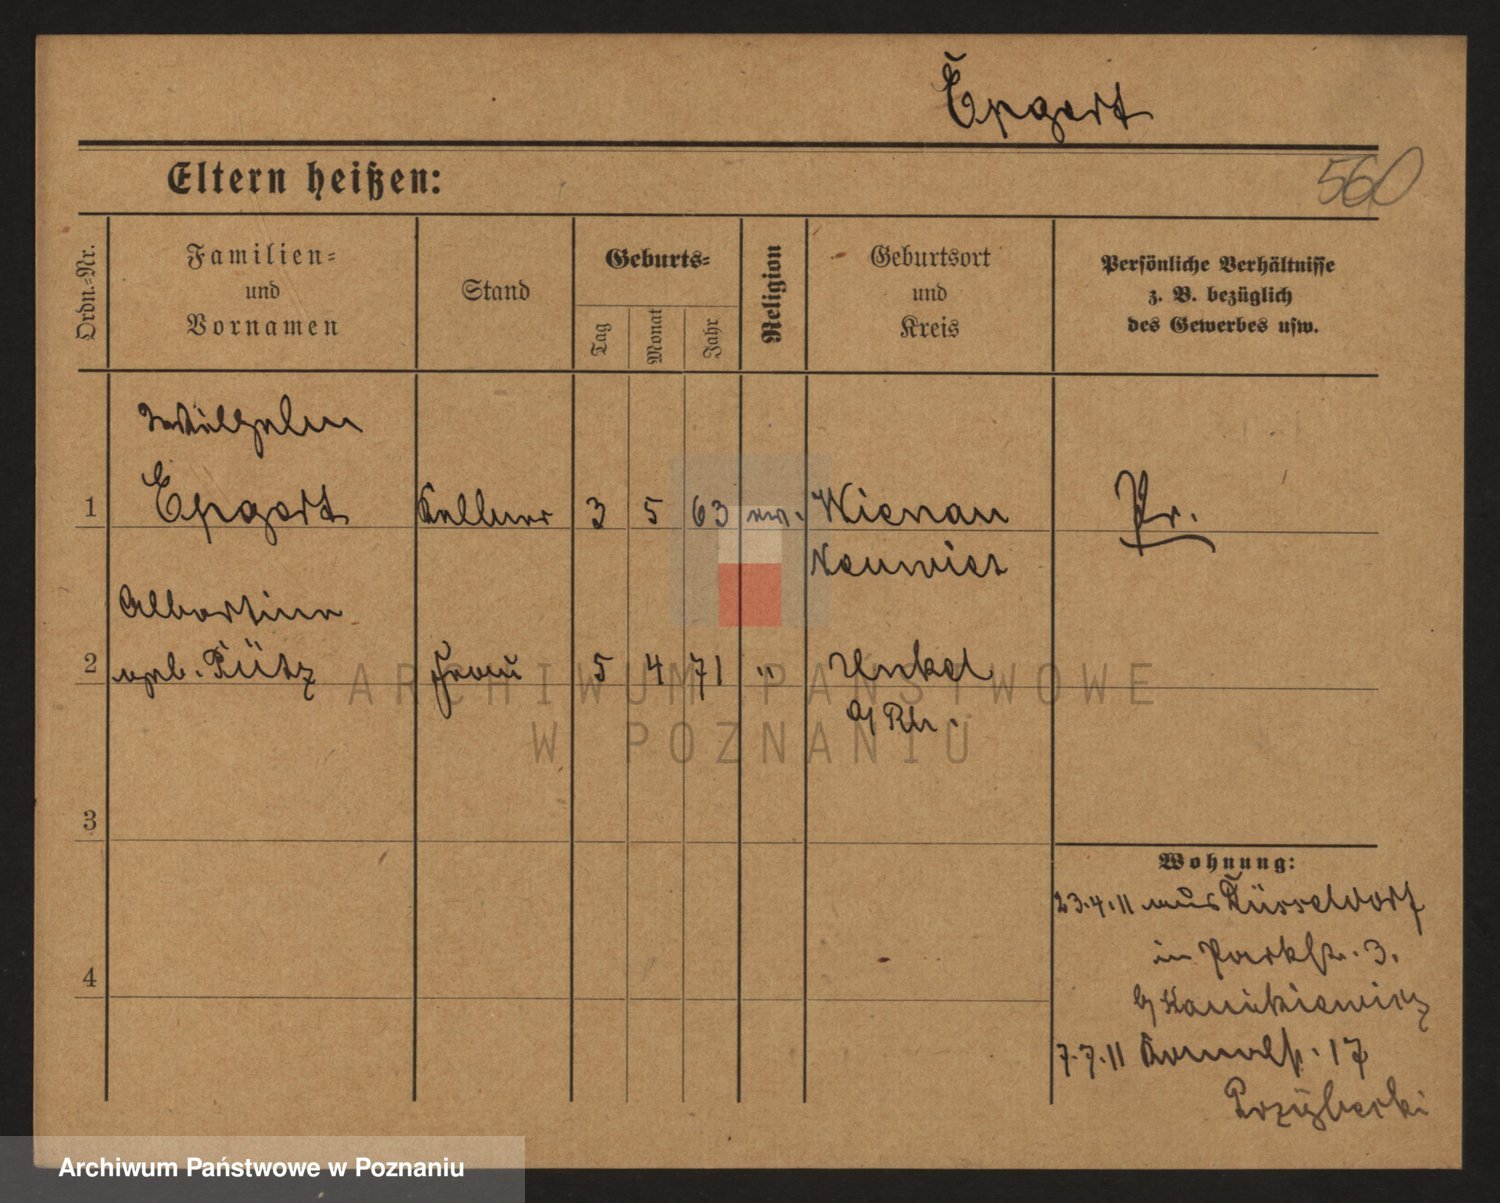 Epgert
560
Eltern heißen:
Ordn.-Nr.
Familien-
und
Vornamen
Stand
Geburts-
Tag
Monat
Jahr
Religion
Geburtsort
und
Kreis
Persönliche Verhältnisse
z. B. bezüglich
des Gewerbes usw.
Wilhelm
1 Epgert Kellner 3 5 63 ev. Wienau Pr.
Neuwied
Albertine
2 geb. Pütz Frau 5 4 71 " Unkel
a/Rh.
3
4
Wohnung:
23.4.11 aus Düsseldorf
in Parkstr. 3.
b/
7.7.11 Kanalstr. 17
ARCHIWUM PAŃSTWOWE
W POZNANIU
Archiwum Państwowe w Poznaniu